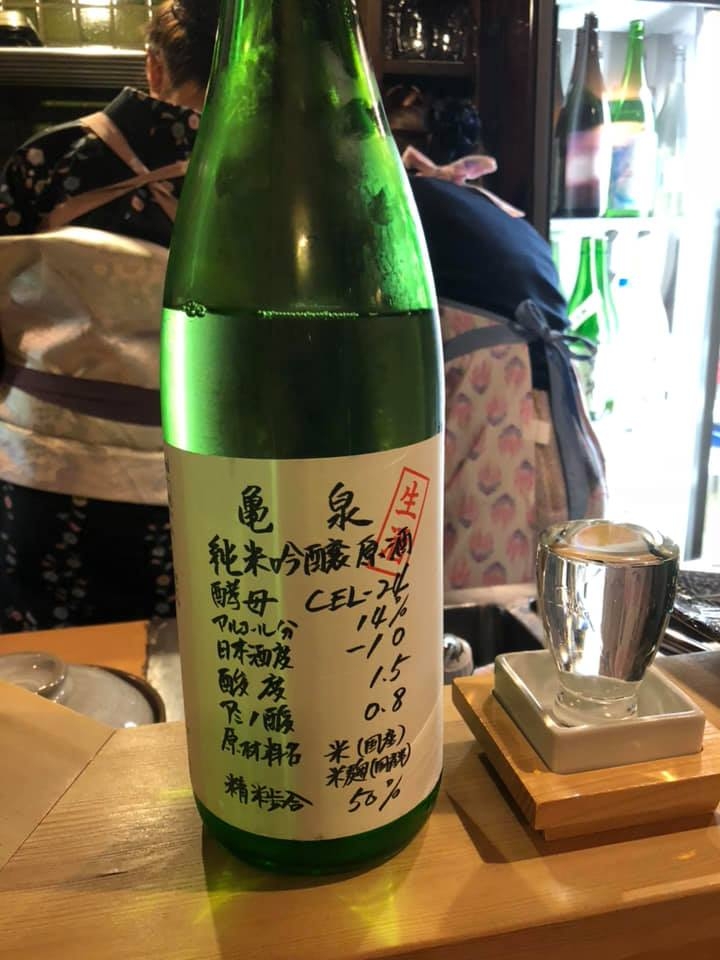 亀泉
生酒
純米吟醸原酒
酵母 CEL-24
アルコール分 14%
日本酒度 -10
酸度 1.5
アミノ酸 0.8
原材料名 米(国産)
米麹(国産)
精米歩合 50%